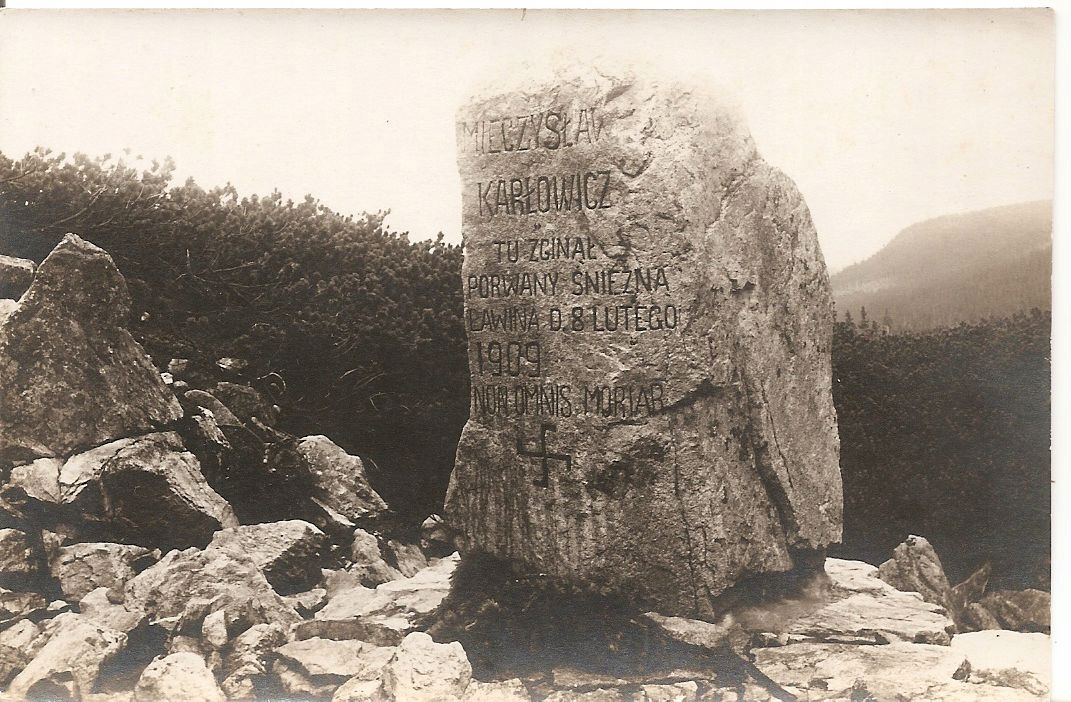 MIECZYSŁAV
KARŁOWICZ
TU ZGINAŁ
PORWANY ŚNIEŻNA
ŁAWINA D. 8 LUTEGO
1909
NON.OMNIS.MORIAR